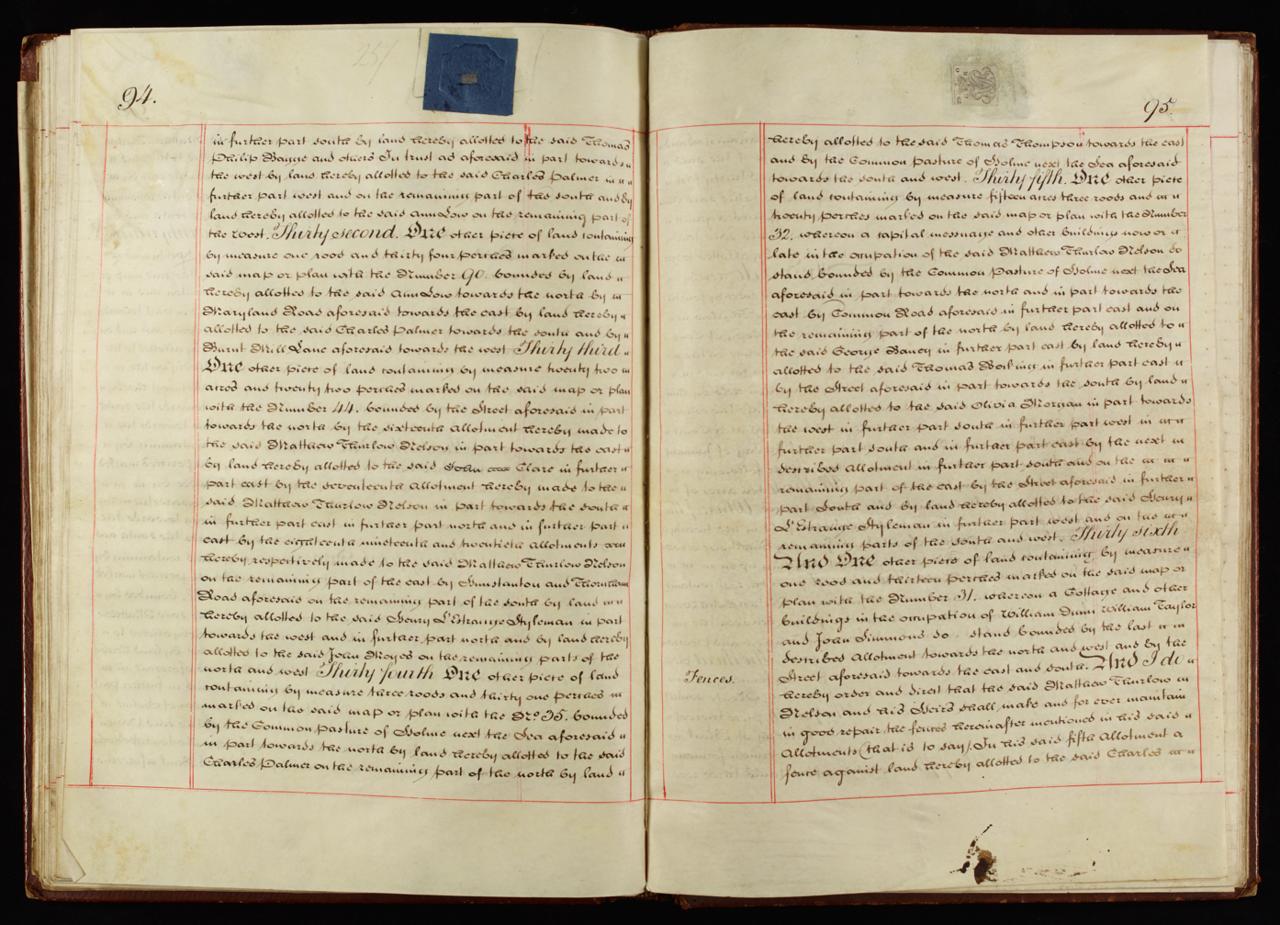 94.
in further part south by land hereby allotted to the said Thomas
Philip Bagge and others In trust as aforesaid in part towards
the west by land hereby allotted to the said Charles Palmer in
further part west and on the remaining part of the south and by
land hereby allotted to the said Ann Low on the remaining part of
the West. Thirty second. One other piece of land containing
by measure one rood and thirty four perches marked on the
said map or plan with the Number 90. bounded by land
hereby allotted to the said Ann Low towards the north by
Maryland Road aforesaid towards the east by land hereby
allotted to the said Charles Palmer towards the south and by
Burnt Mill Lane aforesaid towards the west Thirty third
One other piece of land containing by measure twenty two
acres and twenty two perches marked on the said map or plan
with the Number 44. bounded by the Street aforesaid in part
towards the north by the sixteenth Allotment hereby made to
the said Matthew Thurlow Nelson in part towards the east
by land hereby allotted to the said John Clare in further
part east by the seventeenth Allotment hereby made to the
said Matthew Thurlow Nelson in part towards the south
in further part east in further part north and in further part
east by the eighteenth nineteenth and twentieth allotments
hereby respectively made to the said Matthew Thurlow Nelson
on the remaining part of the east by Hunstanton and Thornham
Road aforesaid on the remaining part of the south by land
hereby allotted to the said Henry L'Estrange Styleman in part
towards the west and in further part north and by land hereby
allotted to the said John Moyes on the remaining parts of the
north and west Thirty fourth One other piece of land
containing by measure three roods and thirty one perches
marked on the said map or plan with the No. 35. bounded
by the Common Pasture of Holme next the Sea aforesaid
in part towards the north by land hereby allotted to the said
Charles Palmer on the remaining part of the north by land
95
hereby allotted to the said Thomas Thompson towards the east
and by the Common Pasture of Holme next the Sea aforesaid
towards the south and west. Thirty fifth. One other piece
of land containing by measure fifteen acres three roods and
twenty perches marked on the said map or plan with the Number
32. whereon a capital messuage and other buildings now or
late in the occupation of the said Matthew Thurlow Nelson do
stand bounded by the Common Pasture of Holme next the Sea
aforesaid in part towards the north and in part towards the
east by Common Road aforesaid in further part east and on
the remaining part of the north by land hereby allotted to
the said George Bancy in further part east by land hereby
allotted to the said Thomas Hosking in further part east
by the Street aforesaid in part towards the south by land
hereby allotted to the said Olivia Morgan in part towards
the west in further part south in further part west in
further part south and in further part east by the next
described Allotment in further part south and on the
remaining part of the east by the Street aforesaid in further
part South and by land hereby allotted to the said Henry
L'Estrange Styleman in further part west and on the
remaining parts of the south and west. Thirty sixth
And One other piece of land containing by measure
one rood and thirteen perches marked on the said map or
plan with the Number 31. whereon a Cottage and other
buildings in the occupation of William Dunn William Taylor
and John Simmons do stand bounded by the last
described Allotment towards the north and west and by the
Street aforesaid towards the east and south. And I do
Fences.
hereby order and direct that the said Matthew Thurlow
Nelson and his Heirs shall make and for ever maintain
in good repair the fences hereinafter mentioned in his said
Allotments (that is to say) In his said fifth Allotment a
fence against land hereby allotted to the said Charles